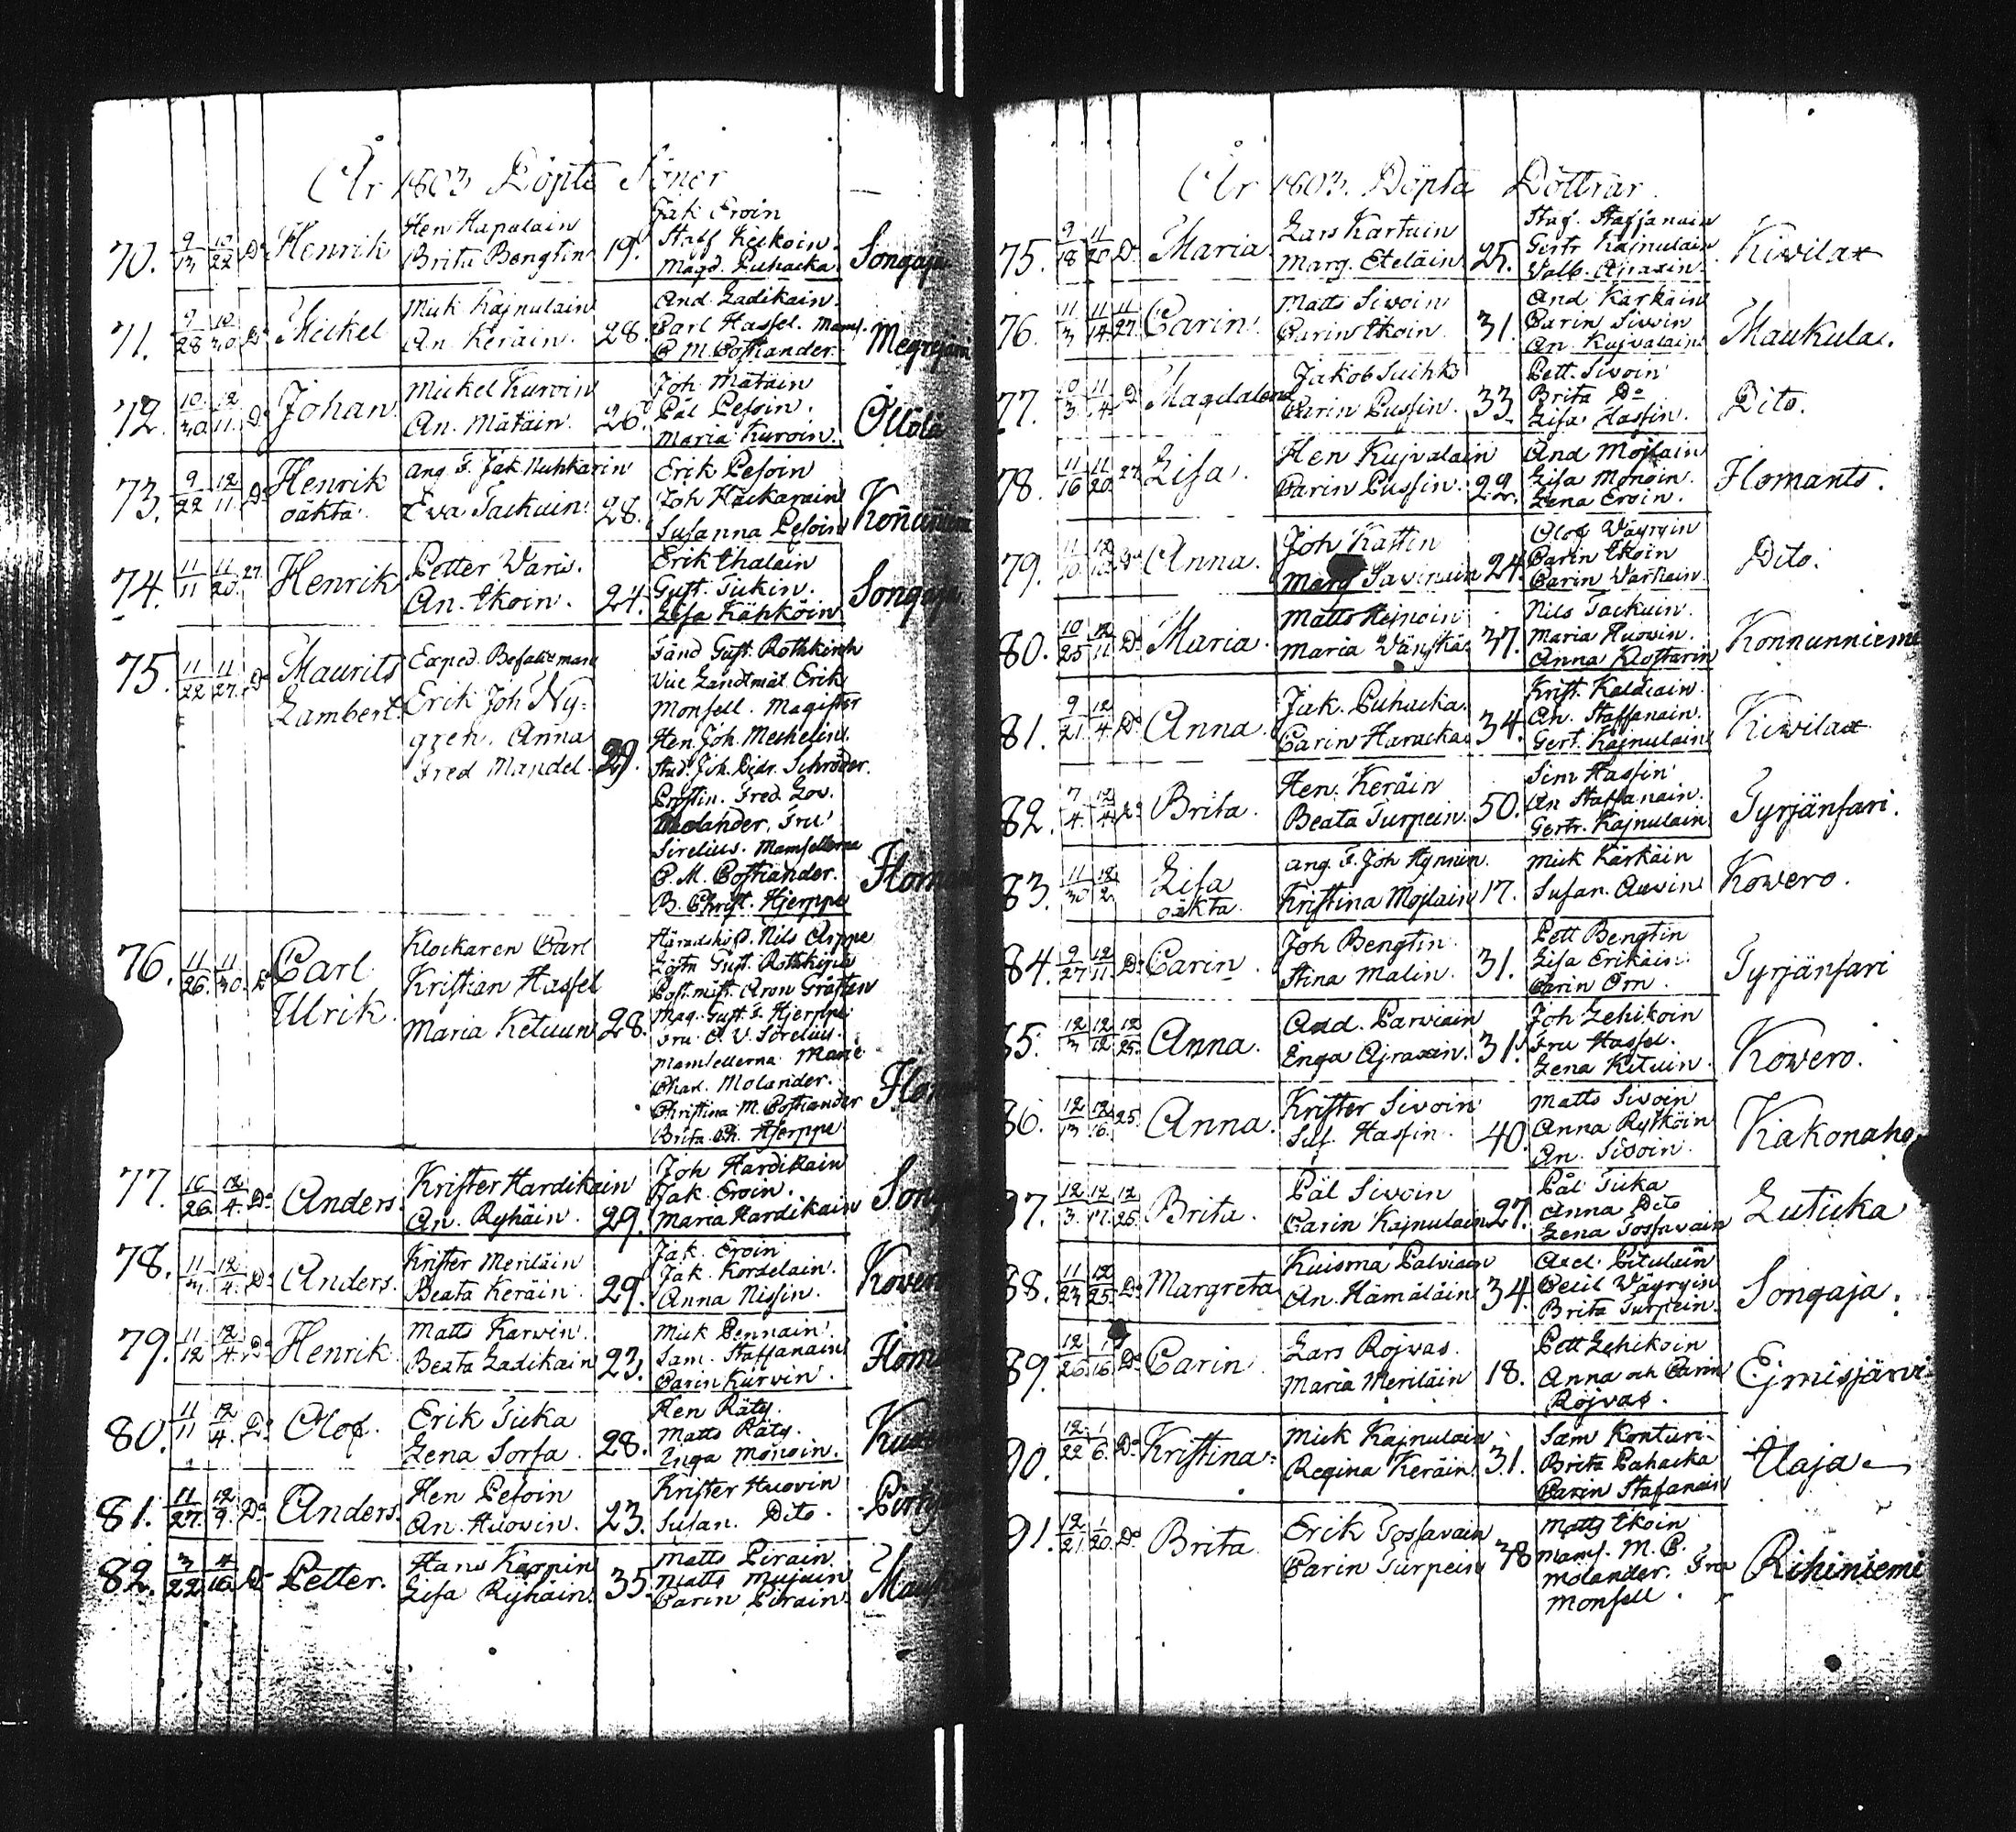 År 1803 Döpte Söner
70. 9/13 10/22 Do Henrik Hen Hapalain Brita Bengtin 19. Jak Eroin
Staff Keckoin.
Magd. Puhacka. Songaja
71. 9/28 10/30 Do Mickel Mick Kajnulain An. Keräin. 28. And. Ladikain.
Carl Hassel. Mams.
C M. Costiander.
72. 10/30 12/11 Do Johan Mickel Kurvin An. Mätäin. 26. Joh. Mätäin
Pål Pesoin.
Maria Kuroin. Öllölä
73. 9/22 12/11 Do Henrik oäkta. Eva Tackuin. 28. Erik Pesoin
Susanna Pesoin
74. 11/11 11/20 27. Henrik Petter Waris. An. Ikoin. 24. Erik Ihalain
Gust. Tukin.
Lisa Kähköin
75. 11/22 11/27 Do Maurits Lambert. Exped. Befallnman
Erik Joh Ny=
gren. Anna
Fred Mandel. 29. Gust. Rothkirch
Landtmät. Erik
Monsell. Magister
Hen. Joh. Mechelin.
Stud. Joh. Didr. Schröder.
Molander, Fru
Sirelius. Mamsellerna
C. M. Costiander.
B. Christ. Hjerppe
76. 11/26 11/30 Do Carl Ulrik. Klockaren Carl
Kristian Hassel
Maria Ketuun 28. Nils Arppe
Gust. Rothkirch
Postmäst. Aron Gråsten
Mag. Gust. F. Hjerppe
Fru C. V. Sirelius.
Mamsellerna Marie
Char. Molander.
Christina M. Costiander
Brita Ch. Hjerppe
77. 10/26 12/4 Do Anders. Krister Hardikain An. Ryhäin. 29. Joh Hardikain
Jak. Eroin.
Maria Hardikain
78. 11/3 12/4 Do Anders. Krister Meriläin Beata Keräin. 29. Jak. Eroin
Jak. Kordelain.
Anna Nissin.
79. 11/12 12/4 Do Henrik Matts Karvin. Beata Ladikain 23. Mick Pennain.
Sam. Staffanain
Carin Kurvin.
80. 11/11 12/4 Do Olof. Erik Tuka Lena Sorsa. 28. Hen Räty.
Matts Räty.
Inga Monoin.
81. 11/27 12/9 Do Anders. Hen Pesoin An. Huovin. 23. Krister Huovin
Susan. Dito.
82. 3/22 4/16 Do Petter. Hans Karpin Lisa Ryhäin. 35. Matts Pirain.
Matts Mujuin
Carin Pirain
År 1803. Döpta Döttrar.
75. 9/18 11/20 Do Maria. Lars Kartuin Marg. Eteläin 25. Staf. Staffanain
Gertr Kajnulain
Valb. Ajraxin. Kivilax
76. 11/3 11/14 11/27 Carin. Matts Sivoin Carin Ikoin. 31. And Karkäin
Carin Sivoin
An. Kujvalain Maukula.
77. 10/3 11/4 Do Magdalena Jakob Suihko Carin Pussin. 33. Pett. Sivoin
Brita Do
Lisa Hassin. Dito.
78. 11/16 11/20 27 Lisa. Hen Kujvalain Carin Pussin. 29. And Mojlain
Lisa Monoin.
Lena Eroin. Ilomants.
79. Anna. Joh Kattin 24. Olof Väyryin
Carin Ikoin
Dito.
80. 10/25 12/11 Do Maria. Matts Hejnoin Maria Vänskä 37. Nils Tackuin.
Maria Huovin.
Anna Kostarin Konnunniemi
81. 9/21 12/4 Do Anna. Jak. Puhacka. Carin Haracka 34. Krist. Kaldiain.
An. Staffanain.
Gert. Kajnulain Kivilax
82. 7/4 12/4 Do Brita. Hen. Keräin Beata Turpein. 50. Sim Hassin
An Staffanain.
Gertr. Kajnulain Tyrjänsari.
83. 11/30 12/2 Lisa oäkta. ang. F. Joh Hynnin. Kristina Mojlain 17. Mick Kärkäin
Susan. Auvin Kowero.
84. 9/27 12/11 Do Carin. Joh Bengtin. Stina Malin. 31. Pett Bengtin
Lisa Erikäin.
Carin Orn. Tyrjänsari
85. 12/3 12/12 12/25 Anna. And. Parviain Enga Ajraxin. 31. Joh Lehikoin
Fru Hassel.
Lena Ketuin. Kowero.
86. 12/13 12/16 25. Anna. Krister Sivoin Sus. Hassin. 40. Matts Sivoin
Anna Rytköin
An. Sivoin. Kakonaho
87. 12/3 12/17 12/25 Brita. Pål Sivoin Carin Kajnulain 27. Pål Tuka
Anna Dito
Lena Tossavain Lutuka
88. 11/23 12/25 Do Margreta Kuisma Palviain An. Hämäläin 34. Axel. Pitulain
Cecil Väyryin
Brita Turpein. Songaja.
89. 12/26 1/16 Do Carin Lars Rojvas. Maria Meriläin 18. Pett Lehikoin
Anna och Carin
Rojvas. Ejmisjärvi
90. 12/22 1/6 Do Kristina. Mick Kajnulain Regina Keräin. 31. Sam Konturi.
Brita Puhacka
Carin Stafanain Uaja
91. 12/21 1/20 Do Brita Erik Tossavain Carin Turpein 38 Matts Ikoin
Mams. M. C.
Molander. Fru
Monsell. Rihiniemi